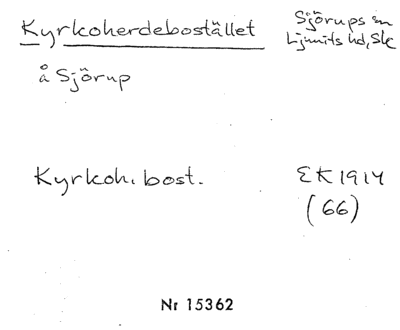 Kyrkoherdebostället
Sjörups sn
Ljunits hd, Sk
å Sjörup
Kyrkoh. bost.
EK 1914
(66)
Nr 15362